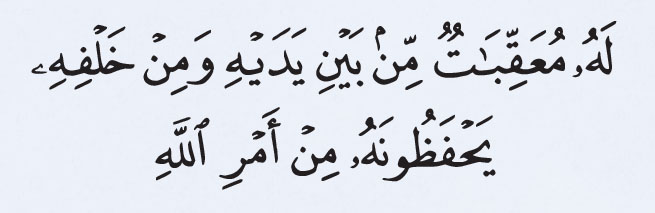 لَهُۥ مُعَقِّبَـٰتٌۭ مِّنۢ بَيْنِ يَدَيْهِ وَمِنْ خَلْفِهِۦ
يَحْفَظُونَهُۥ مِنْ أَمْرِ ٱللَّهِ